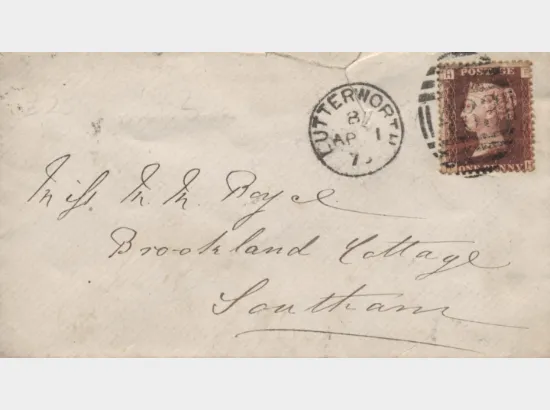 LUTTERWORTH
AP 1
POSTAGE
PENNY
Miss M. M. Royce
Brookland Cottage
Southam